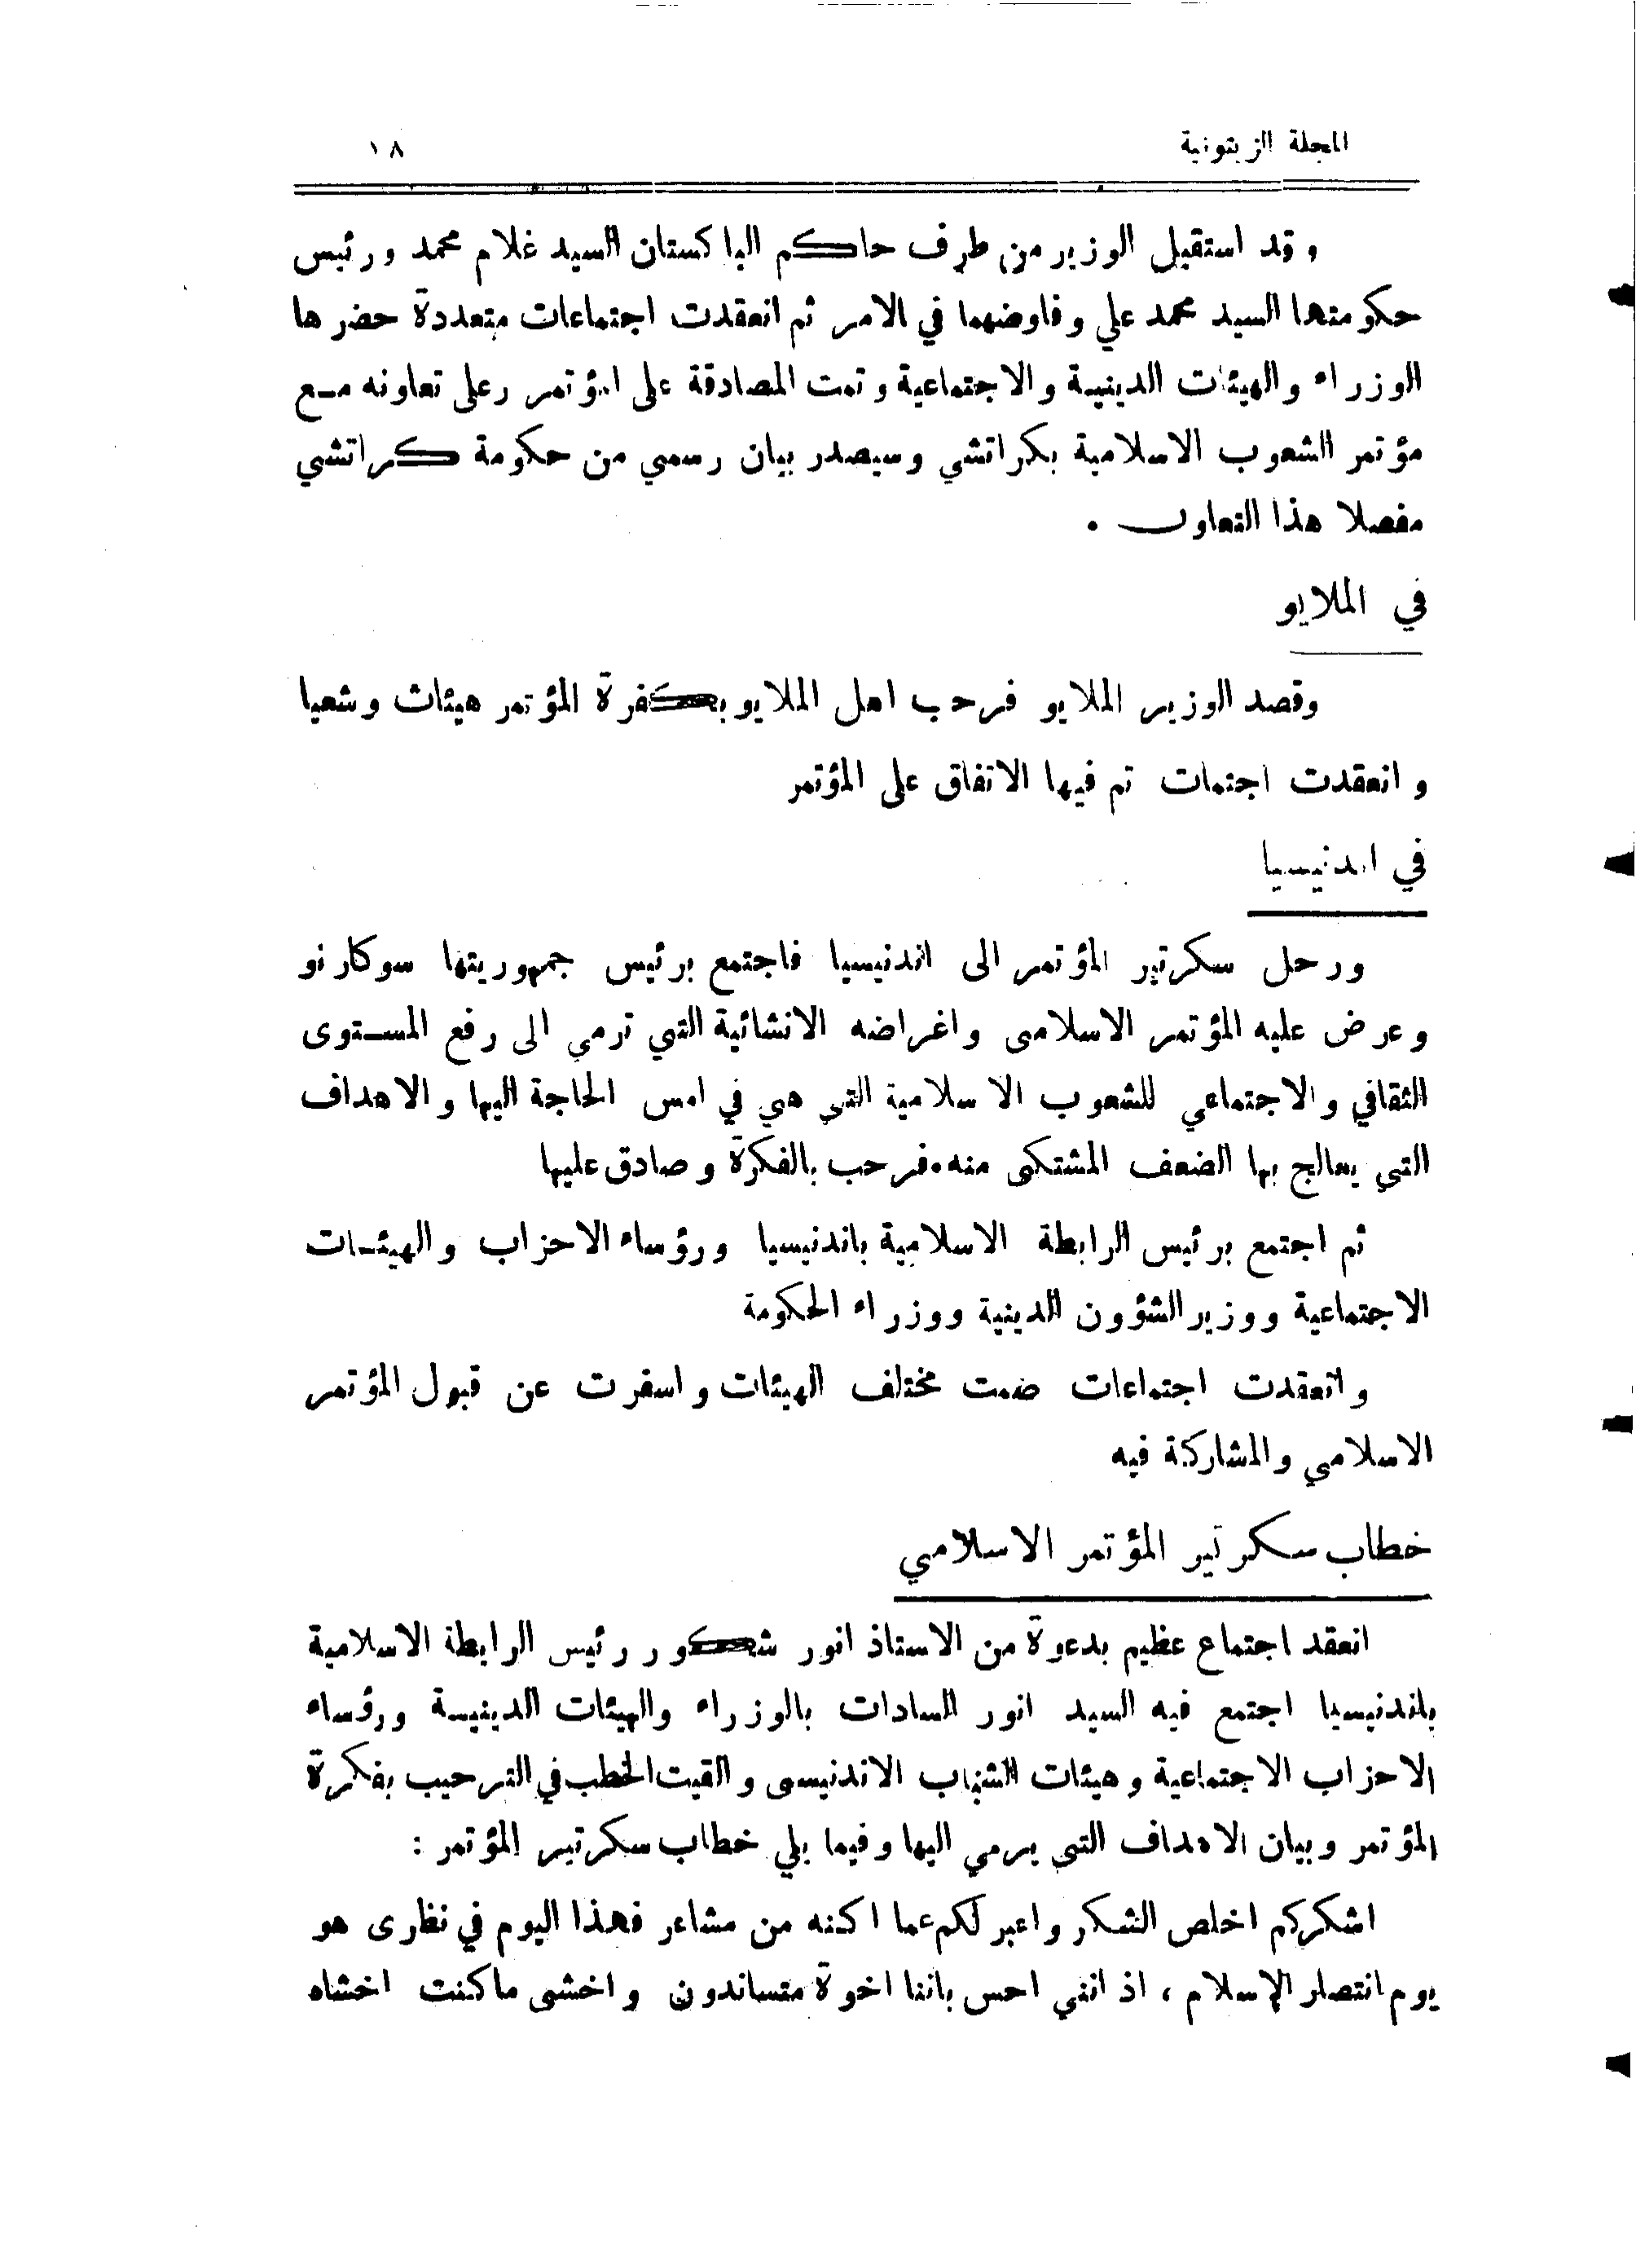 المجلة الزيتونية
١٨
وقد استقبل الوزير من طرف حاكم الباكستان السيد غلام محمد ورئيس
حكومتها السيد محمد علي وفاوضهما في الامر ثم انعقدت اجتماعات متعددة حضرها
الوزراء والهيئات الدينية والاجتماعية وتمت المصادقة على المؤتمر وعلى تعاونه مع
مؤتمر الشعوب الاسلامية بكراتشي وسيصدر بيان رسمي من حكومة كراتشي
مفصلا هذا التعاون .
في الملايو
وقصد الوزير الملايو فرحب اهل الملايو بكفرة المؤتمر هيئات وشعيا
وانعقدت اجتمات تم فيها الاتفاق على المؤتمر
في اندنيسيا
ورحل سكرتير المؤتمر الى اندنيسيا فاجتمع برئيس جمهوريتها سوكارنو
وعرض عليه المؤتمر الاسلامى واغراضه الانشائية التي ترمي الى رفع المستوى
الثقافي والاجتماعي للشعوب الاسلامية التي هي في امس الحاجة اليها والاهداف
التي يعالج بها الضعف المشتكى منه. فرحب بالفكرة وصادق عليها
ثم اجتمع برئيس الرابطة الاسلامية باندنيسيا ورؤساء الاحزاب والهيئات
الاجتماعية ووزير الشؤون الدينية ووزراء الحكومة
وانعقدت اجتماعات ضمت مختلف الهيئات واسفرت عن قبول المؤتمر
الاسلامي والمشاركة فيه
خطاب سكرتير المؤتمر الاسلامي
انعقد اجتماع عظيم بدعوة من الاستاذ انور شكور رئيس الرابطة الاسلامية
باندنيسيا اجتمع فيه السيد انور السادات بالوزراء والهيئات الدينية ورؤساء
الاحزاب الاجتماعية وهيئات الشباب الاندنيسى والقيت الخطب في الترحيب بفكرة
المؤتمر وبيان الاهداف التي يرمي اليها وفيما يلي خطاب سكرتير المؤتمر :
اشكركم اخلص الشكر واعبر لكم عما اكنه من مشاعر فهذا اليوم في نظارى هو
يوم انتصار الإسلام ، اذ انني احس باننا اخوة متساندون واخشى ما كنت اخشاه